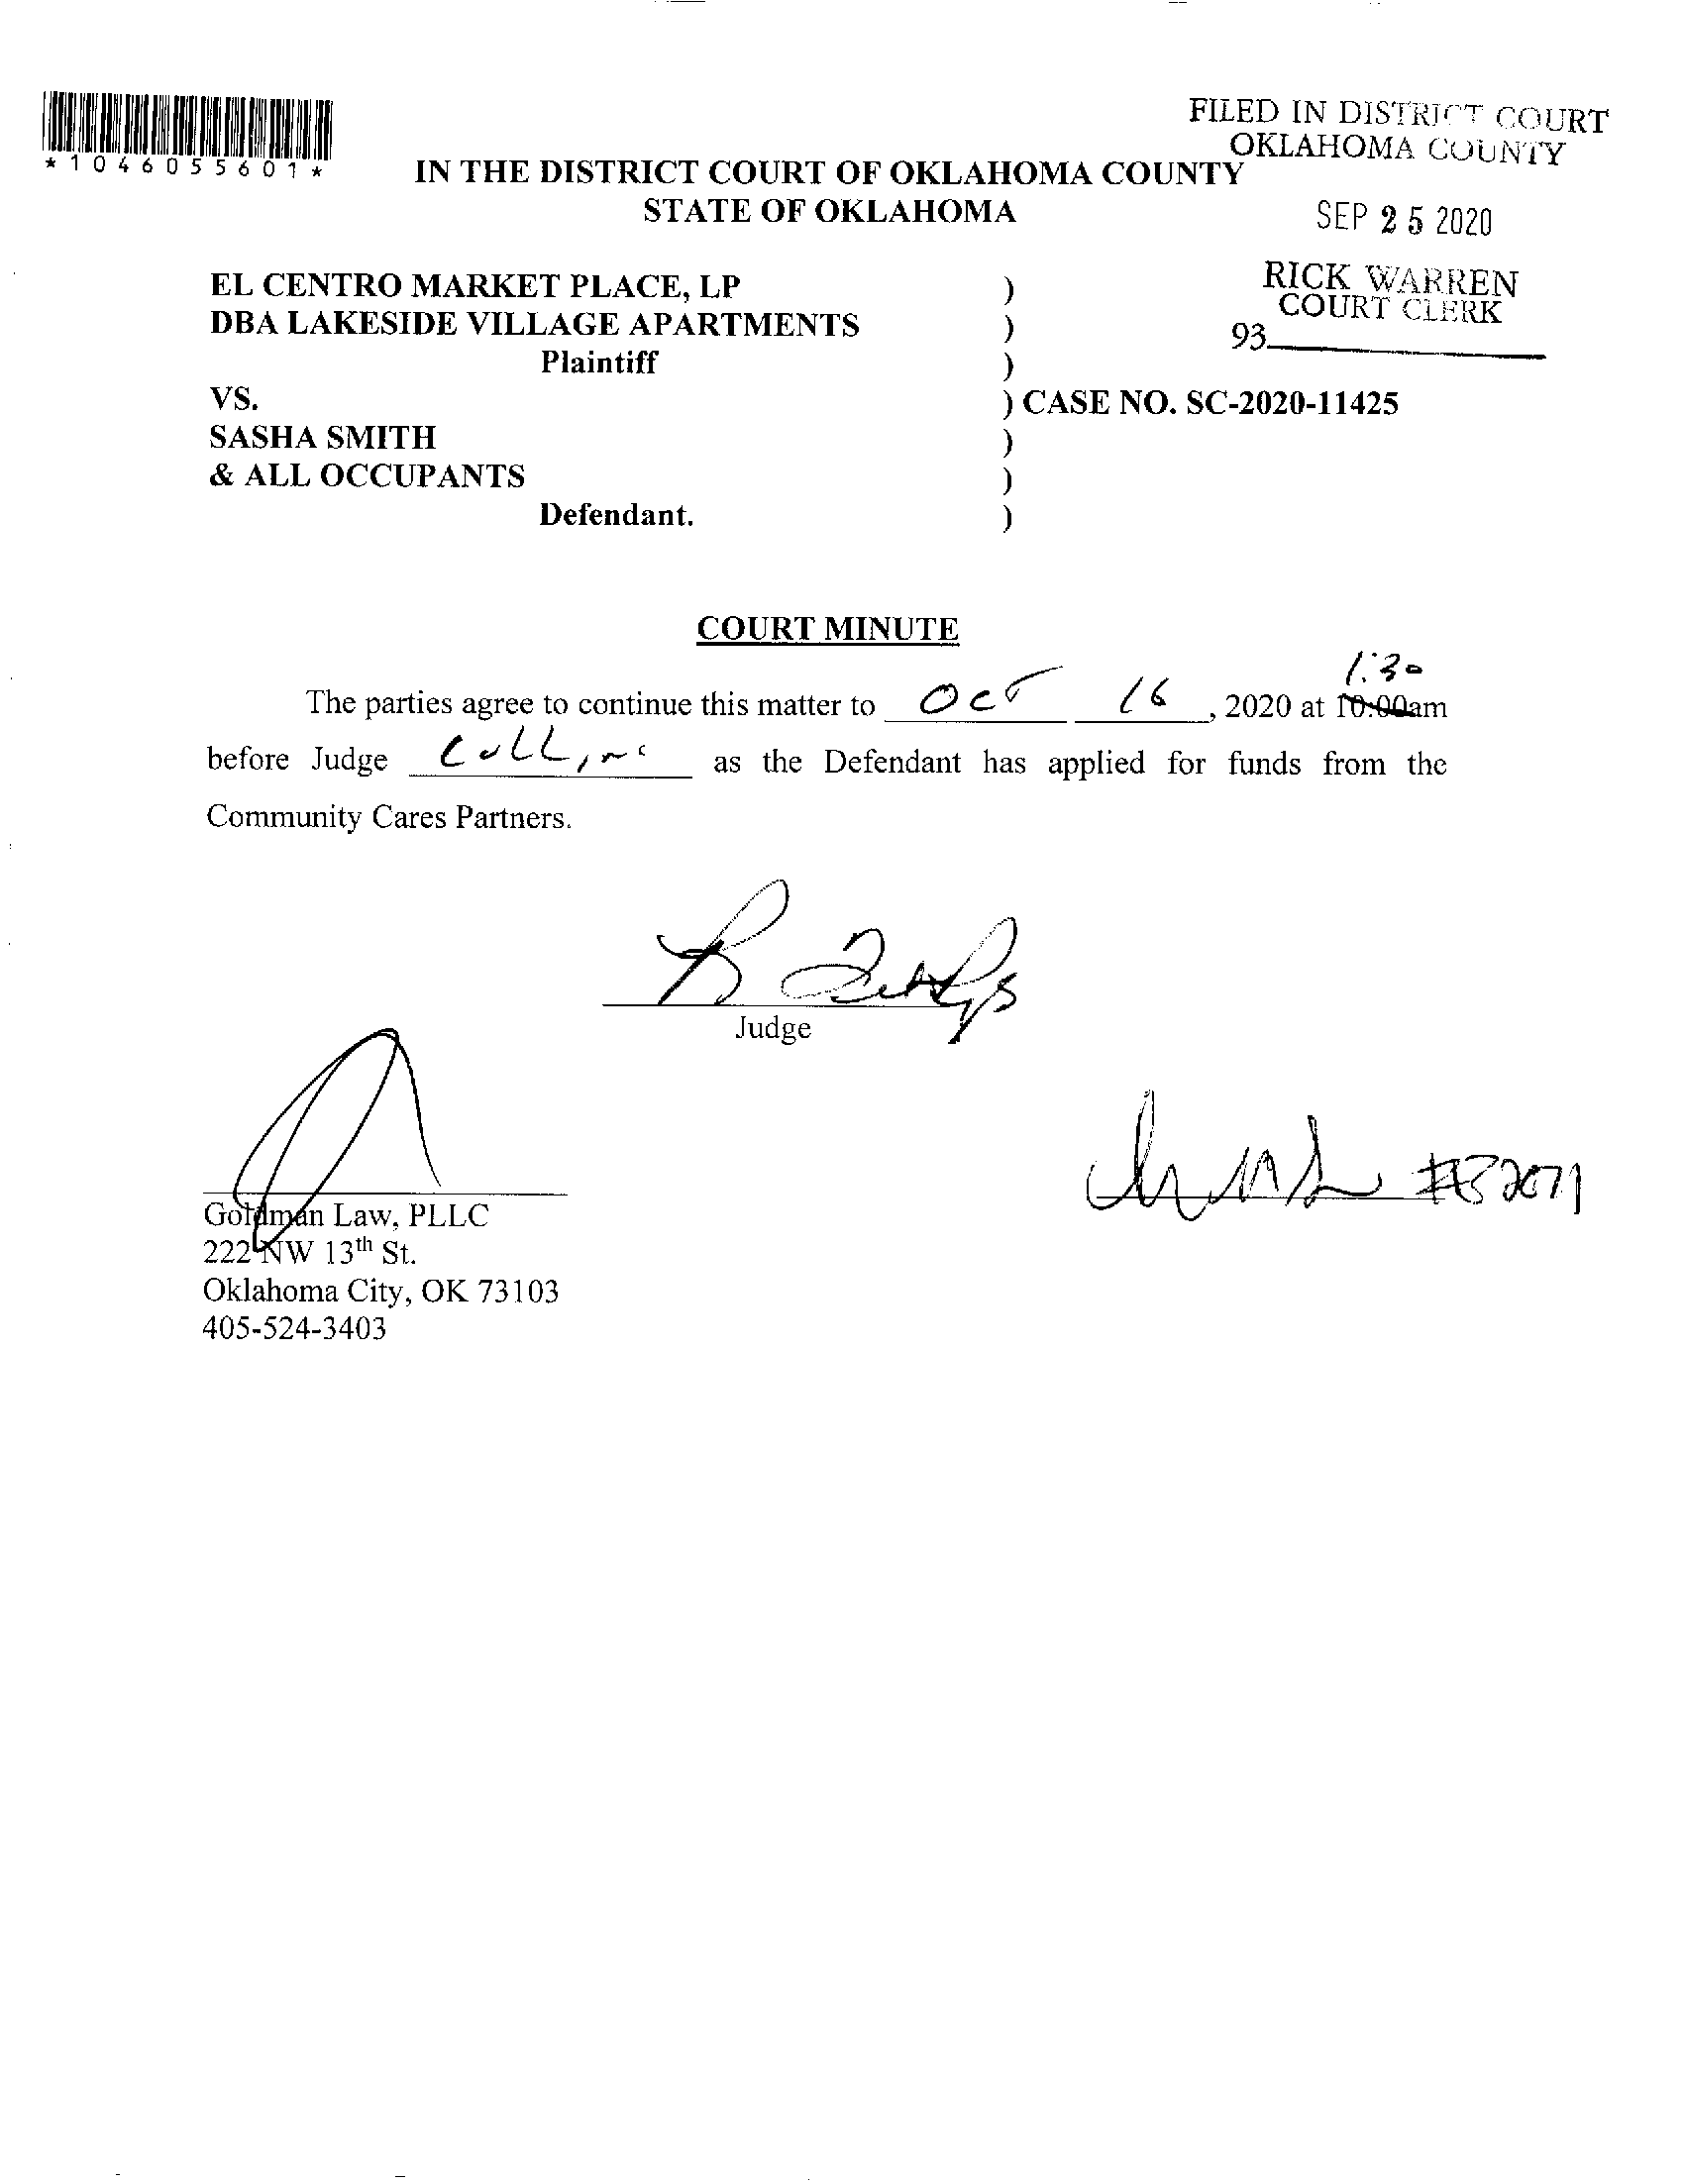 FILED IN DISTRICT COURT
OKLAHOMA COUNTY
*1046055601*
IN THE DISTRICT COURT OF OKLAHOMA COUNTY
STATE OF OKLAHOMA
SEP 25 2020
RICK WARREN
COURT CLERK
93
EL CENTRO MARKET PLACE, LP )
DBA LAKESIDE VILLAGE APARTMENTS )
Plaintiff )
VS. ) CASE NO. SC-2020-11425
SASHA SMITH )
& ALL OCCUPANTS )
Defendant. )
COURT MINUTE
1:30
The parties agree to continue this matter to Oct 16, 2020 at 10:00am
before Judge Collins as the Defendant has applied for funds from the
Community Cares Partners.
Judge
#32071
Goldman Law, PLLC
222 NW 13th St.
Oklahoma City, OK 73103
405-524-3403